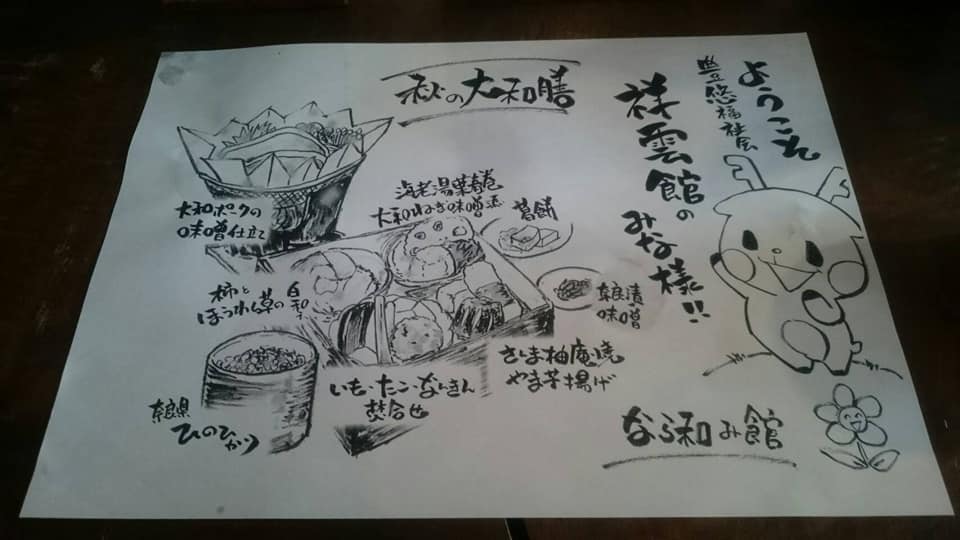 ようこそ
豊悠福祉会
祥雲館の
みな様!!
秋の大和膳
大和ポークの
味噌仕立て
海老湯葉春巻
大和ねぎ味噌
葛餅
柿と
ほうれん草の白和え
奈良漬
味噌
さんま柚庵焼
やま芋揚げ
いも・たこ・なんきん
焚合せ
奈良県
ひのひかり
なら和み館